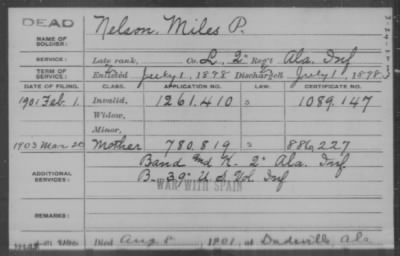 DEAD
Nelson, Miles P.
NAME OF SOLDIER:
SERVICE: Late rank, Co. L, 2" Reg't Ala. Inf
TERM OF SERVICE: Enlisted July 1, 1898 Discharged July 1, 1898
DATE OF FILING. CLASS. APPLICATION NO. LAW. CERTIFICATE NO.
1901 Feb. 1. Invalid, 1261.410 1089,147
Widow,
Minor,
1903 Mar 20 Mother 780,819 886,227
ADDITIONAL SERVICES: Band and K. 2" Ala. Inf
B. 39" U.S. Vol Inf
WAR WITH SPAIN
REMARKS:
Died Aug 8, 1901, at Dadeville, Ala.